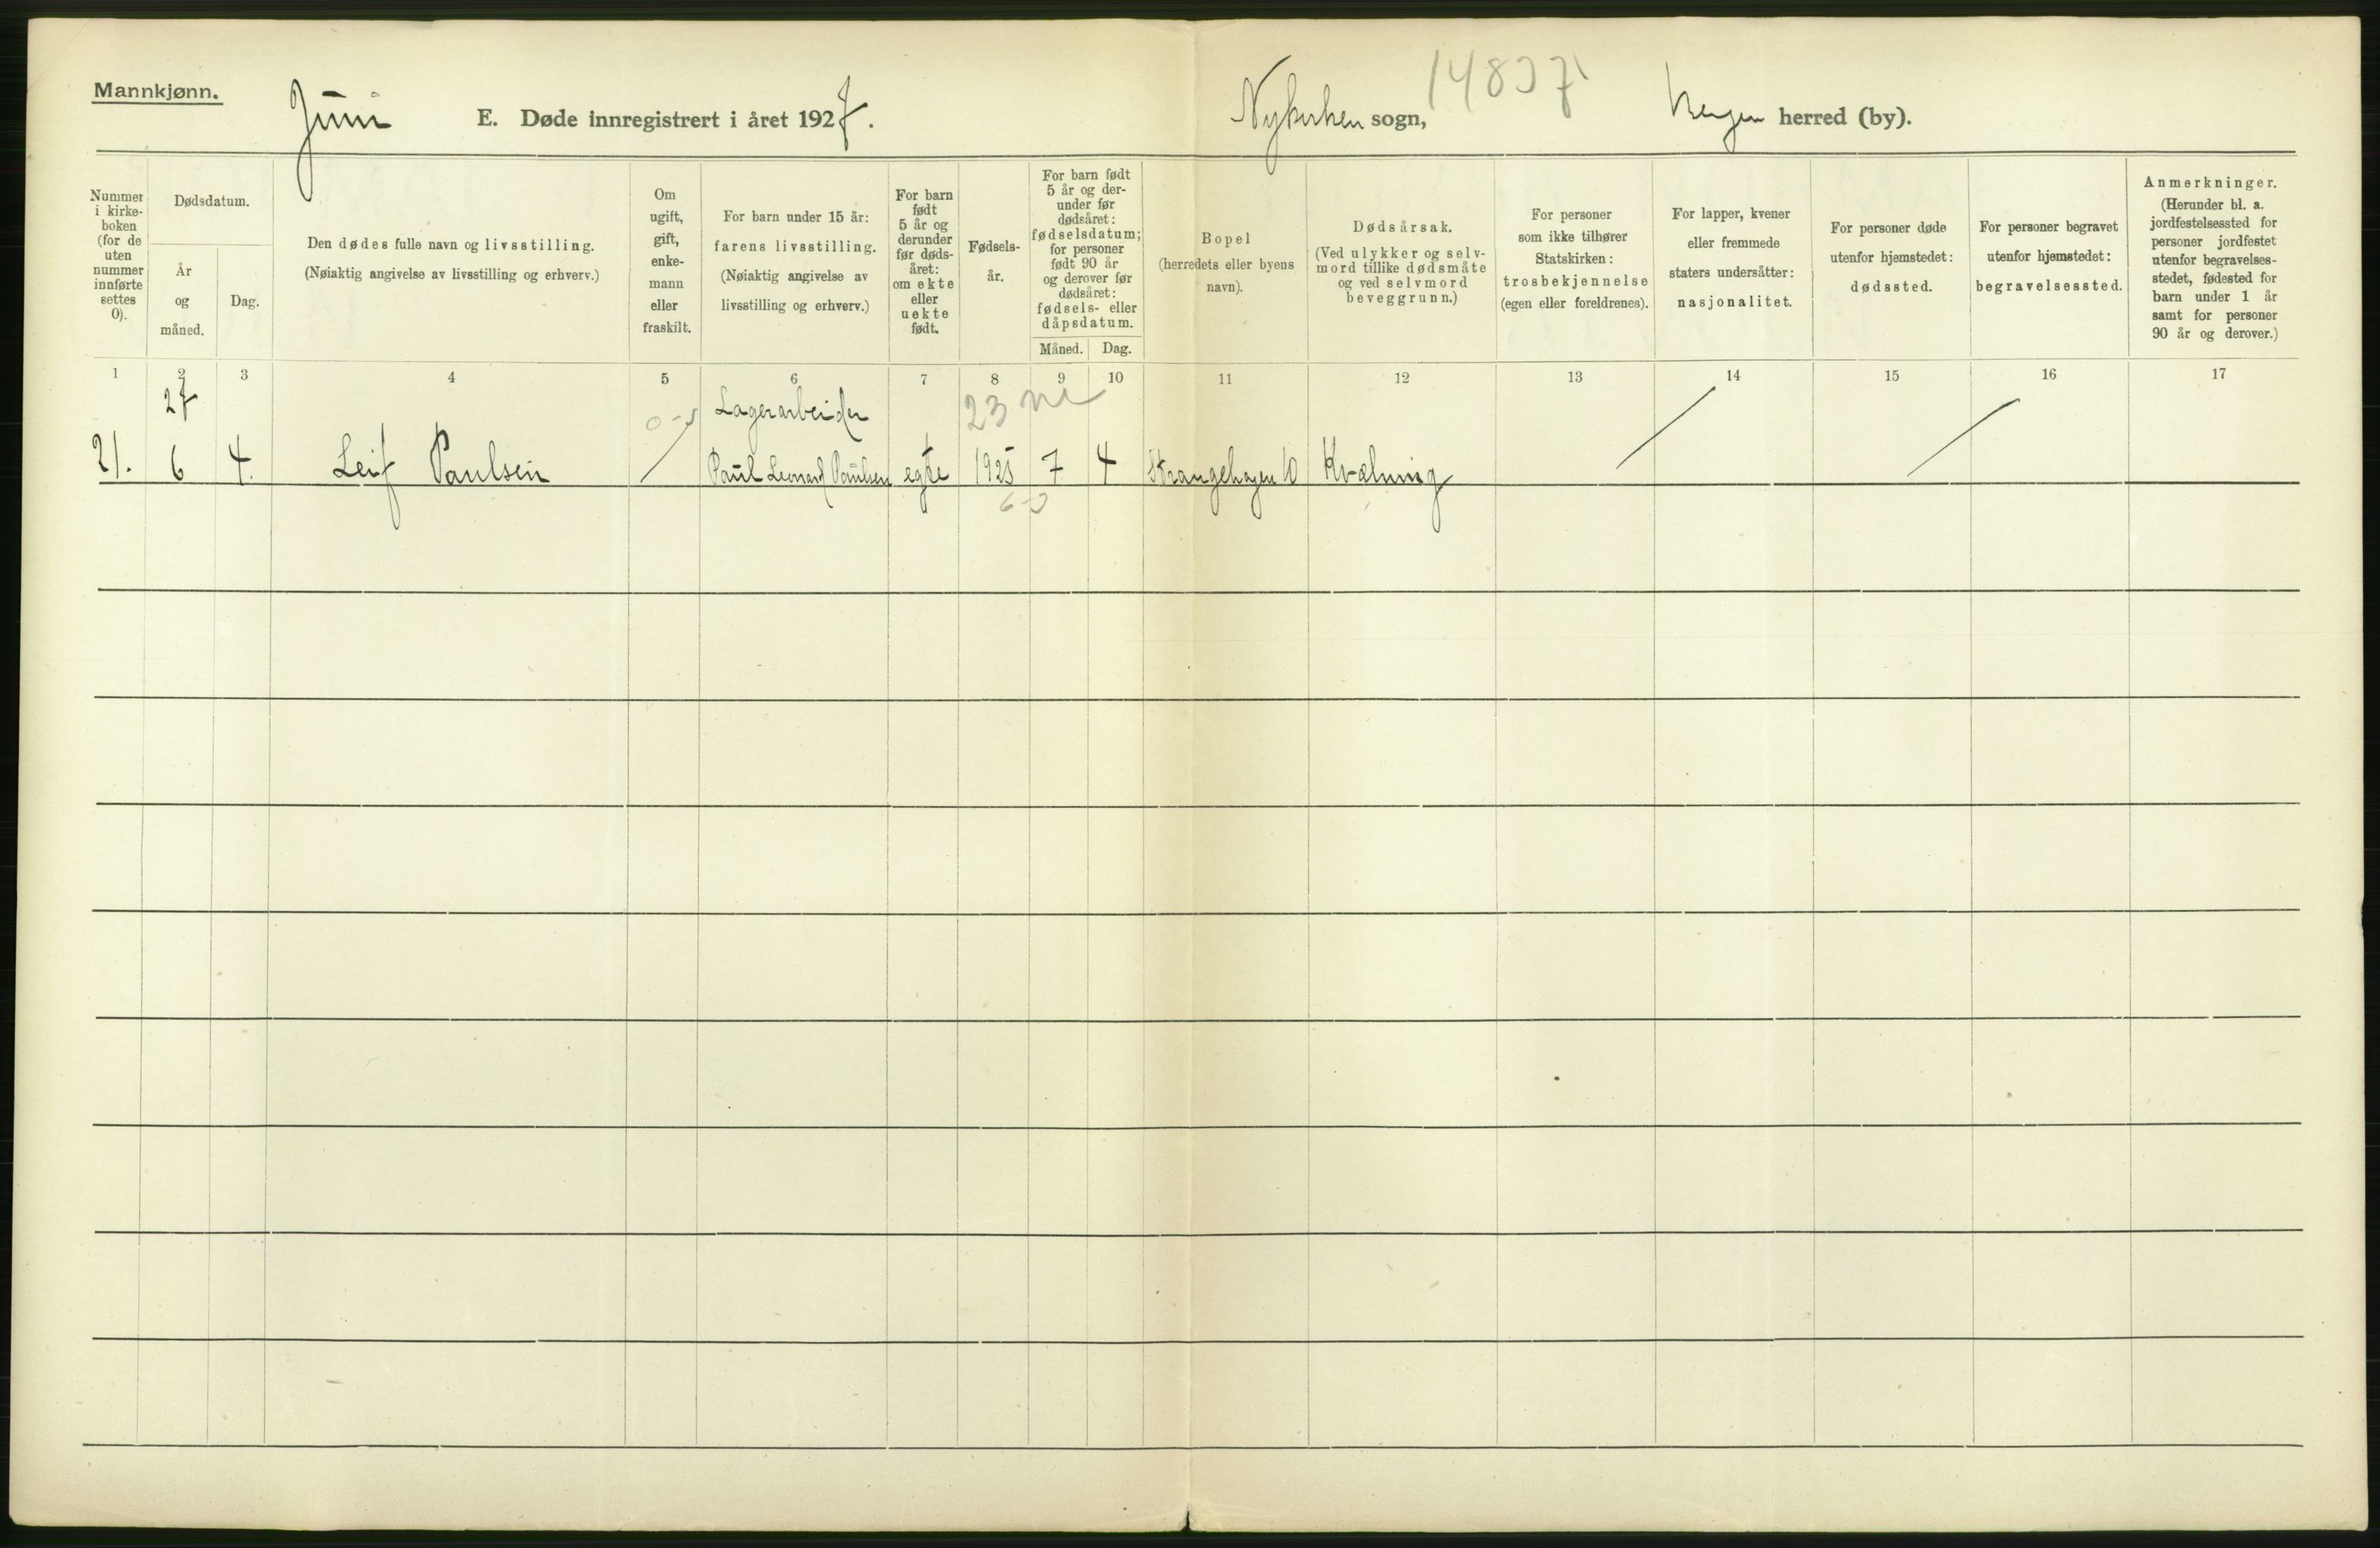 Mannkjønn.
Juni
E. Døde innregistrert i året 1927.
Nykirken sogn,
Bergen herred (by).
Nummer i kirke- boken (for de uten nummer innførte settes 0).
Dødsdatum.
År og måned.
Dag.
Den dødes fulle navn og livsstilling.
(Nøiaktig angivelse av livsstilling og erhverv.)
Om ugift, gift, enke- mann eller fraskilt.
For barn under 15 år:
farens livsstilling.
(Nøiaktig angivelse av
livsstilling og erhverv.)
For barn født 5 år og derunder før døds- året: om ekte eller uekte født.
Fødsels- år.
For barn født 5 år og der- under før dødsåret: fødselsdatum; for personer født 90 år og derover før dødsåret: fødsels- eller dåpsdatum.
Måned.
Dag.
Bopel
(herredets eller byens
navn).
Dødsårsak.
(Ved ulykker og selv-
mord tillike dødsmåte
og ved selvmord
beveggrunn.)
For personer
som ikke tilhører
Statskirken:
trosbekjennelse
(egen eller foreldrenes).
For lapper, kvener
eller fremmede
staters undersåtter:
nasjonalitet.
For personer døde
utenfor hjemstedet:
dødssted.
For personer begravet
utenfor hjemstedet:
begravelsessted.
Anmerkninger.
(Herunder bl. a.
jordfestelsessted for
personer jordfestet
utenfor begravelses-
stedet, fødested for
barn under 1 år
samt for personer
90 år og derover.)
1 2 3 4 5 6 7 8 9 10 11 12 13 14 15 16 17
27 0-5 Lagerarbeider 23
21. 6 4. Leif Paulsen / Paul Leonard Paulsen egte 1925 7 4 Strangehagen 10 Kvælning / /